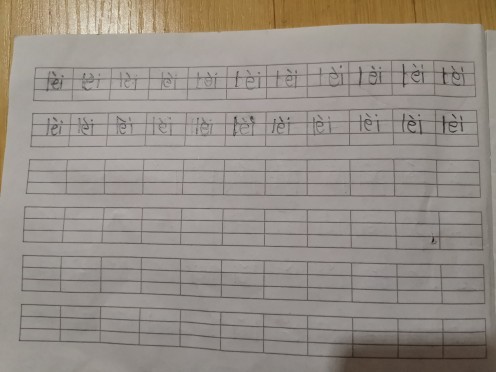 lèi lèi lèi lèi lèi lèi lèi lèi lèi lèi lèi
lèi lèi lèi lèi lèi lèi lèi lèi lèi lèi lèi